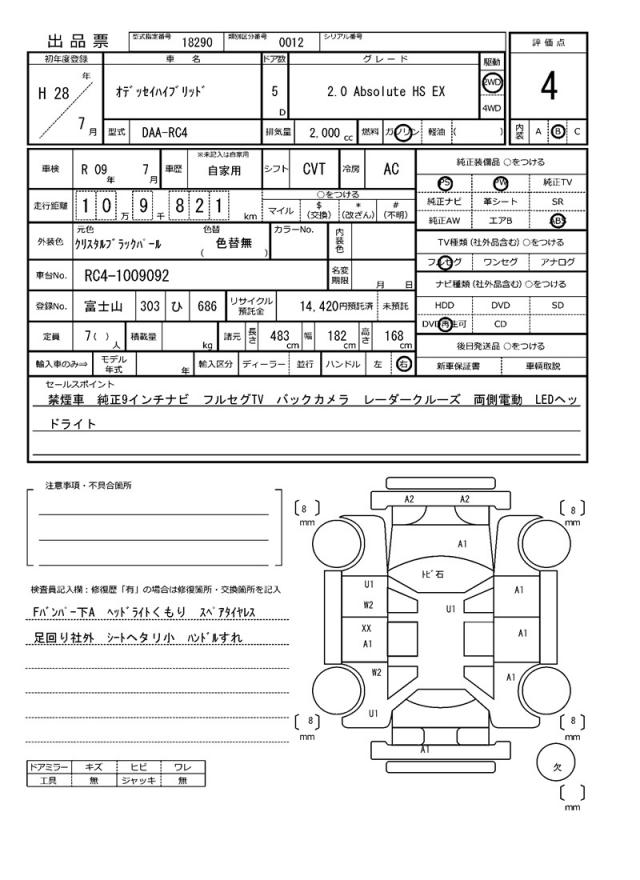 出品票 型式指定番号 18290 類別区分番号 0012 シリアル番号
評価点
4
内装 A B C
初年度登録 車名 ドア数 グレード 駆動
H 28 年 7 月
ｵﾃﾞｯｾｲﾊｲﾌﾞﾘｯﾄﾞ 5 D 2.0 Absolute HS EX 2WD 4WD
型式 DAA-RC4 排気量 2,000 cc 燃料 ガソリン 軽油 ( )
車検 R 09 年 7 月 車歴 ※未記入は自家用 自家用 シフト CVT 冷房 AC
走行距離 1 0 万 9 千 8 2 1 km
○をつける
マイル $ (交換) * (改ざん) # (不明)
外装色 元色 ｸﾘｽﾀﾙﾌﾞﾗｯｸﾊﾟｰﾙ 色替 ( 色替無 ) カラーNo. 内装色
車台No. RC4-1009092 名変期限 月 日
登録No. 富士山 303 ひ 686 リサイクル預託金 14,420円預託済 未預託
定員 7( ) 人 積載量 kg 諸元 長さ 483 cm 幅 182 cm 高さ 168 cm
輸入車のみ⇒ モデル年式 年 輸入区分 ディーラー 並行 ハンドル 左 右
純正装備品 ○をつける
PS PW 純正TV
純正ナビ 革シート SR
純正AW エアB ABS
TV種類 (社外品含む) ○をつける
フルセグ ワンセグ アナログ
ナビ種類 (社外品含む) ○をつける
HDD DVD SD
DVD再生可 CD
後日発送品 ○をつける
新車保証書 車輌取説
セールスポイント
禁煙車 純正9インチナビ フルセグTV バックカメラ レーダークルーズ 両側電動 LEDヘッ
ドライト
注意事項・不具合箇所
検査員記入欄：修復歴「有」の場合は修復箇所・交換箇所を記入
Fﾊﾞﾝﾊﾟｰ下A ﾍｯﾄﾞﾗｲﾄくもり ｽﾍﾟｱﾀｲﾔﾚｽ
足回り社外 ｼｰﾄヘタリ小 ﾊﾝﾄﾞﾙすれ
ドアミラー キズ ヒビ ワレ
工具 無 ジャッキ 無
A2 A2
8 mm
8 mm
A1
ﾄﾋﾞ石
U1
A1
W2
U1
XX
A1
A1
W2
A1
U1
8 mm
8 mm
A1
欠
mm